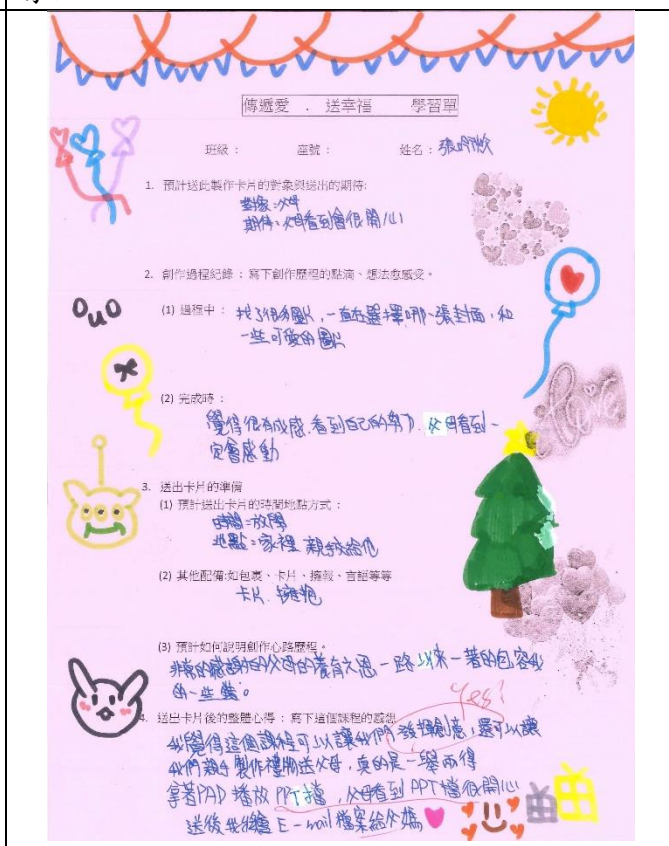 傳遞愛 . 送幸福 學習單
班級 : 座號 : 姓名 : 張吟
1. 預計送此製作卡片的對象與送出的期待:
對象:父母
期待:父母看到會很開心
2. 創作過程紀錄 : 寫下創作歷程的點滴、想法愈感受。
OuO
(1) 過程中 : 找了很多圖片,一直在選擇哪一張封面,和
一些可愛的圖片
(2) 完成時 :
覺得很有成感,看到自己的努力.父母看到一
定會感動
3. 送出卡片的準備
(1) 預計送出卡片的時間地點方式 :
時間:放學
地點:家裡 親手給他
(2) 其他配備:如包裹、卡片、擁抱、言語等等
卡片.擁抱
(3) 預計如何說明創作心路歷程。
非常的感謝 父母的養育之恩 一路以來一著的包容我
的一些 。
Yes!
4. 送出卡片後的整體心得 : 寫下這個課程的感想
我覺得這個課程可以讓我們發揮創意,還可以讓
我們親手製作禮物送父母,真的是一舉兩得
拿著PAD 播放PPT檔,父母看到PPT檔很開心
送後我 E-mail檔案給爸媽
Love